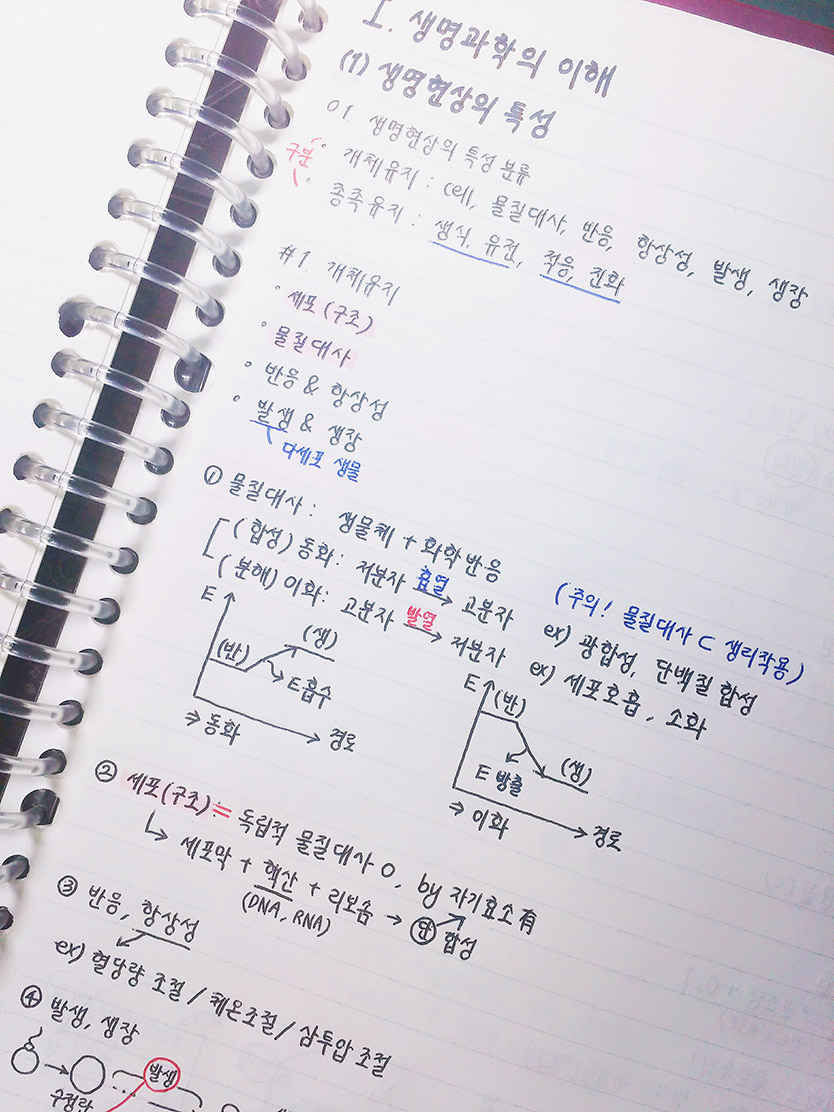 I. 생명과학의 이해
(1) 생명현상의 특성
01 생명현상의 특성 분류
구분
· 개체유지 : cell, 물질대사, 반응, 항상성, 발생, 생장
· 종족유지 : 생식, 유전, 적응, 진화
#1. 개체유지
· 세포(구조)
· 물질대사
· 반응 & 항상성
· 발생 & 생장
다세포 생물
① 물질대사 : 생물체 + 화학반응
(주의! 물질대사 ⊂ 생리작용)
(합성) 동화 : 저분자 흡열 → 고분자 ex) 광합성, 단백질 합성
(분해) 이화 : 고분자 발열 → 저분자 ex) 세포호흡, 소화
E (반) (생)
E흡수
경로
⇒ 동화
E (반) (생)
E 방출
경로
⇒ 이화
② 세포(구조) : = 독립적 물질대사 O, by 자기효소 有
↳ 세포막 + 핵산 + 리보솜 → 단 합성
(DNA, RNA)
③ 반응, 항상성
ex) 혈당량 조절 / 체온조절 / 삼투압 조절
④ 발생, 생장
발생
수정란